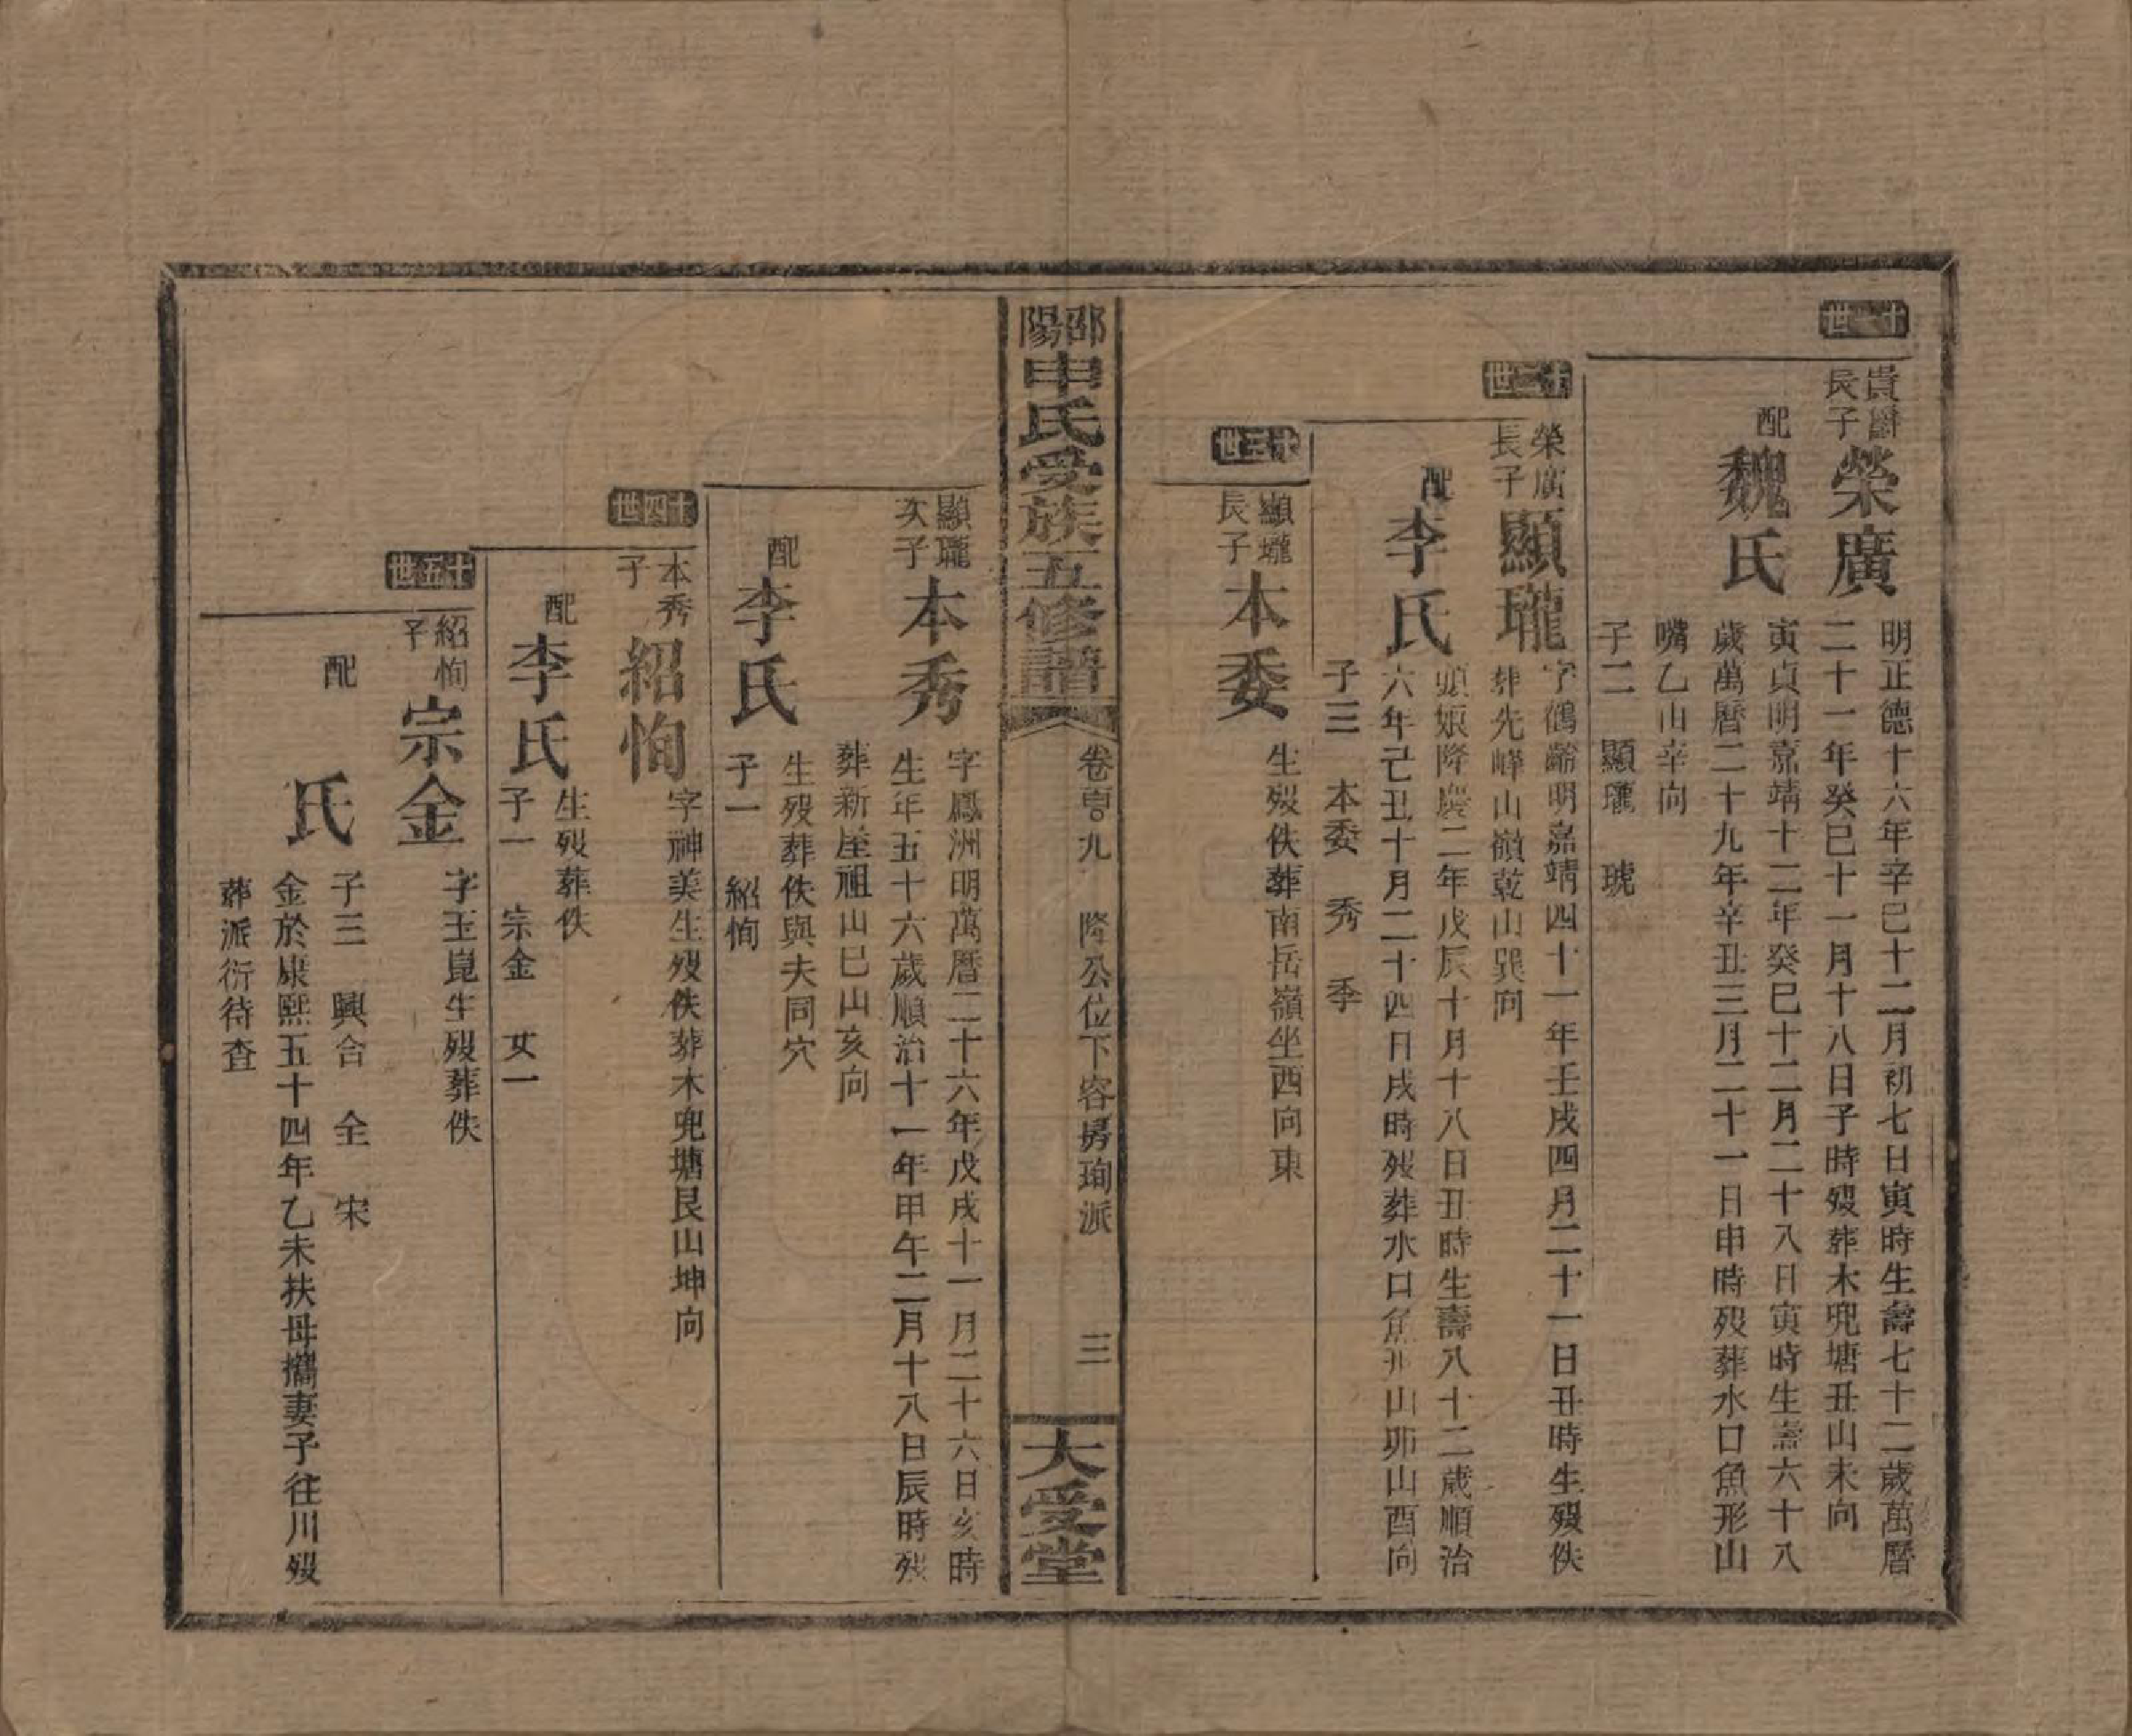 十一世
貴爵
長子
榮廣
明正德十六年辛巳十二月初七日寅時生壽七十二歲萬曆
二十一年癸巳十一月十八日子時歿葬木兜塘丑山未向
配
魏氏
寅貞明嘉靖十二年癸巳十二月二十八日寅時生壽六十八
歲萬曆二十九年辛丑三月二十一日申時歿葬水口魚形山
嘴乙山辛向
子二 顯瓏 琥
十二世
榮廣
長子
顯瓏
字鶴齡明嘉靖四十一年壬戌四月二十一日丑時生歿佚
葬先峰山嶺乾山巽向
配
李氏
頭娘隆慶二年戊辰十月十八日丑時生壽八十二歲順治
六年己丑十月二十四日戌時歿葬水口魚形山卯山酉向
子三 本委 秀 季
十三世
顯瓏
長子
本委
生歿佚葬南岳嶺坐西向東
邵陽
申氏受族五修譜
卷
九 隆公位下容房珣派 三
大受堂
顯瓏
次子
本秀
字鳳洲明萬曆二十六年戊戌十一月二十六日亥時
生年五十六歲順治十一年甲午二月十八日辰時歿
葬新屋祖山巳山亥向
配
李氏
生歿葬佚與夫同穴
子一 紹恂
十四世
本秀
子
紹恂
字神美生歿佚葬木兜塘艮山坤向
配
李氏
生歿葬佚
子一 宗金 女一
十五世
紹恂
子
宗金
字玉崑生歿葬佚
配
氏
子三 興合 全 宋
金於康熙五十四年乙未扶母攜妻子往川歿
葬派衍待查